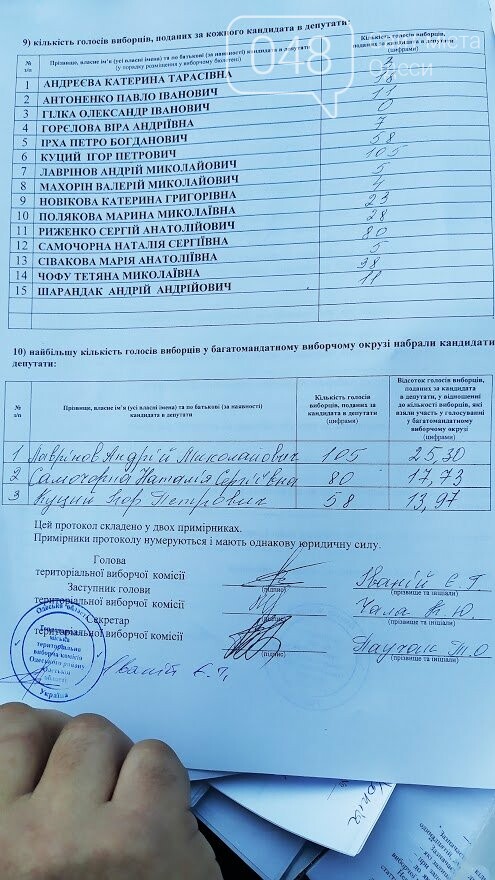 9) кількість голосів виборців, поданих за кожного кандидата в депутати:
№ з/п
Прізвище, власне ім'я (усі власні імена) та по батькові (за наявності) кандидата в депутати
(у порядку розміщення у виборчому бюлетені)
Кількість голосів виборців, поданих за кандидата в депутати
048
міста
Одеси
1 АНДРЕЄВА КАТЕРИНА ТАРАСІВНА
18
2 АНТОНЕНКО ПАВЛО ІВАНОВИЧ 11
3 ГІЛКА ОЛЕКСАНДР ІВАНОВИЧ 0
4 ГОРЄЛОВА ВІРА АНДРІЇВНА 7
5 ІРХА ПЕТРО БОГДАНОВИЧ
6 КУЦИЙ ІГОР ПЕТРОВИЧ 58
7 ЛАВРІНОВ АНДРІЙ МИКОЛАЙОВИЧ 105
8 МАХОРІН ВАЛЕРІЙ МИКОЛАЙОВИЧ 5
9 НОВІКОВА КАТЕРИНА ГРИГОРІВНА 4
10 ПОЛЯКОВА МАРИНА МИКОЛАЇВНА 23
11 РИЖЕНКО СЕРГІЙ АНАТОЛІЙОВИЧ 28
12 САМОЧОРНА НАТАЛІЯ СЕРГІЇВНА 80
13 СІВАКОВА МАРІЯ АНАТОЛІЇВНА 5
14 ЧОФУ ТЕТЯНА МИКОЛАЇВНА 38
15 ШАРАНДАК АНДРІЙ АНДРІЙОВИЧ
10) найбільшу кількість голосів виборців у багатомандатному виборчому окрузі набрали кандидати
депутати:
№ з/п
Прізвище, власне ім'я (усі власні імена) та по батькові (за наявності)
кандидата в депутати
Кількість голосів
виборців, поданих за
кандидата в депутати
(цифрами)
Відсоток голосів виборців,
поданих за кандидата
в депутати, у відношенні
до кількості виборців, які
взяли участь у голосуванні
у багатомандатному
виборчому окрузі
(цифрами)
1 Лаврінов Андрій Миколайович 105 25,30
2 Самочорна Наталія Сергіївна 80 17,73
3 Куций Ігор Петрович 58 13,97
Цей протокол складено у двох примірниках.
Примірники протоколу нумеруються і мають однакову юридичну силу.
Голова
територіальної виборчої комісії
(підпис)
Іваній Є.Г.
(прізвище та ініціали)
Заступник голови
територіальної виборчої комісії
(підпис)
Чала К.Ю.
(прізвище та ініціали)
Секретар
територіальної виборчої комісії
(підпис)
(прізвище та ініціали)
Україна
Іваній Є.Г.